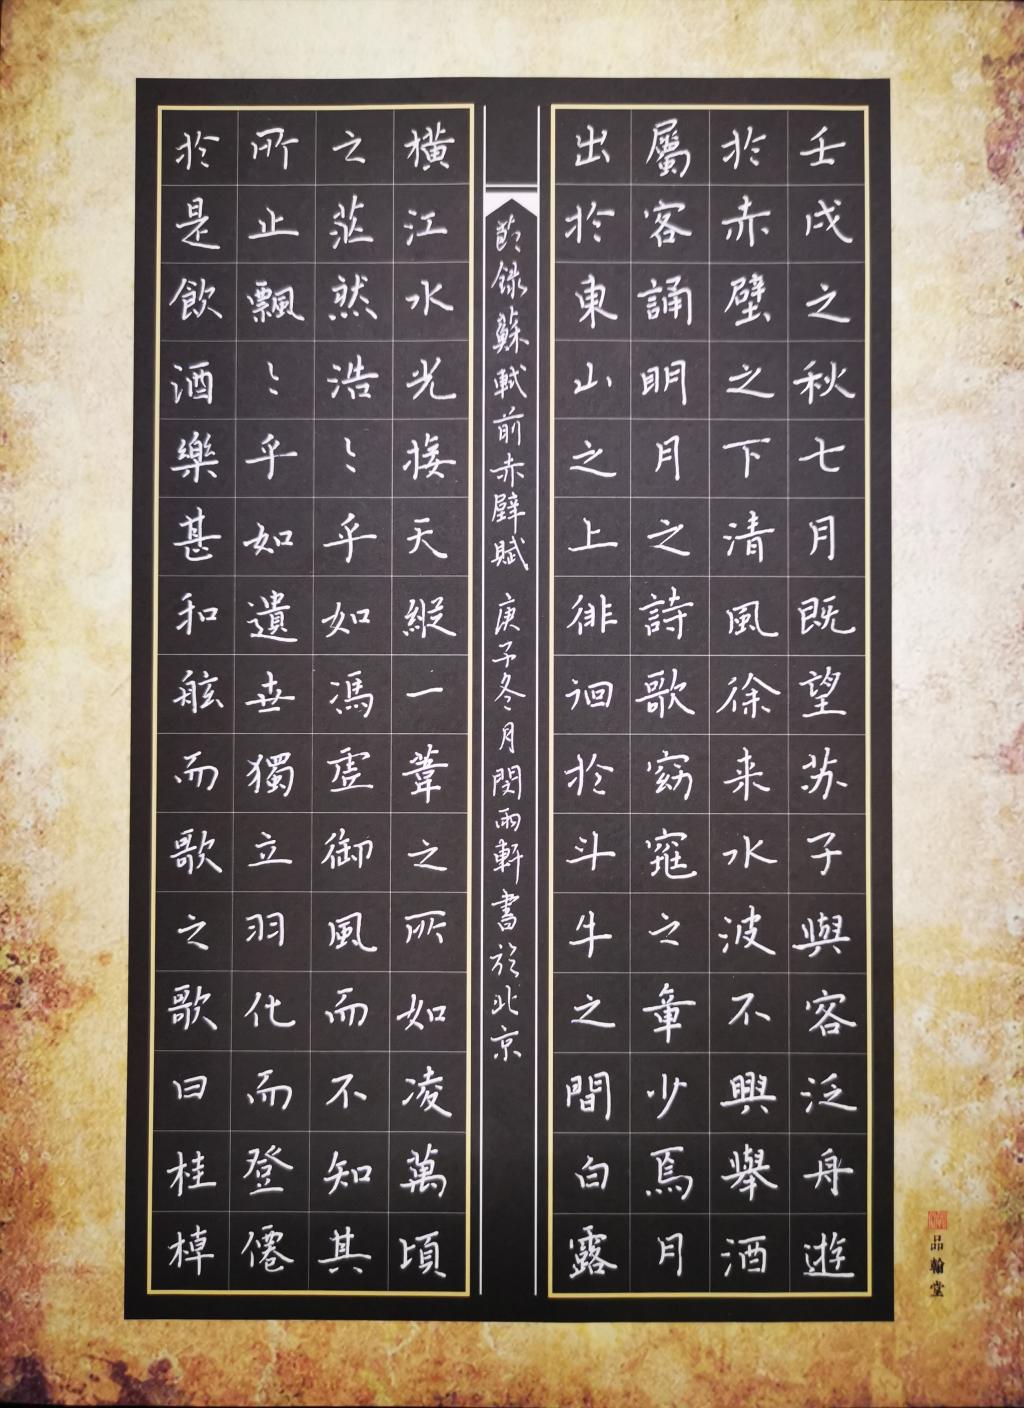 壬戌之秋七月既望苏子與客泛舟遊
於赤壁之下清風徐来水波不興舉酒
屬客誦明月之詩歌窈窕之章少焉月
出於東山之上徘徊於斗牛之間白露
橫江水光接天縱一葦之所如凌萬頃
之茫然浩〻乎如馮虛御風而不知其
所止飄〻乎如遺世獨立羽化而登僊
於是飲酒樂甚和舷而歌之歌曰桂棹
節録蘇軾前赤壁賦 庚子冬月閔雨軒書於北京
品翰堂